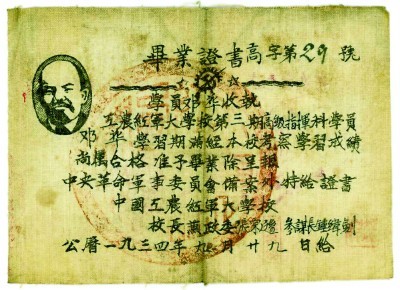 畢業證書高字第29號
學員鄧华收執
工农紅軍大學校第三期高級指揮科學員
邓华學習期滿經本校考察學習成績
尚屬合格准予畢業除報
中央革命軍事委員會備案外特給證書
中國工農紅軍大學校
校長 政委 參謀長鍾緯劍
公曆一九三四年九月廿九日給